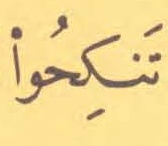 تَنكِحُواْ